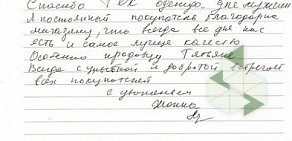 Спасибо Гек одежда для мужчин
Я постоянный покупатель благодарна
магазину, что всегда все для нас
есть и самое лучшее качество
Особенно продавцу Татьяне
Всегда с улыбкой и добротой встречает
всех покупателей
С уважением
Жанна